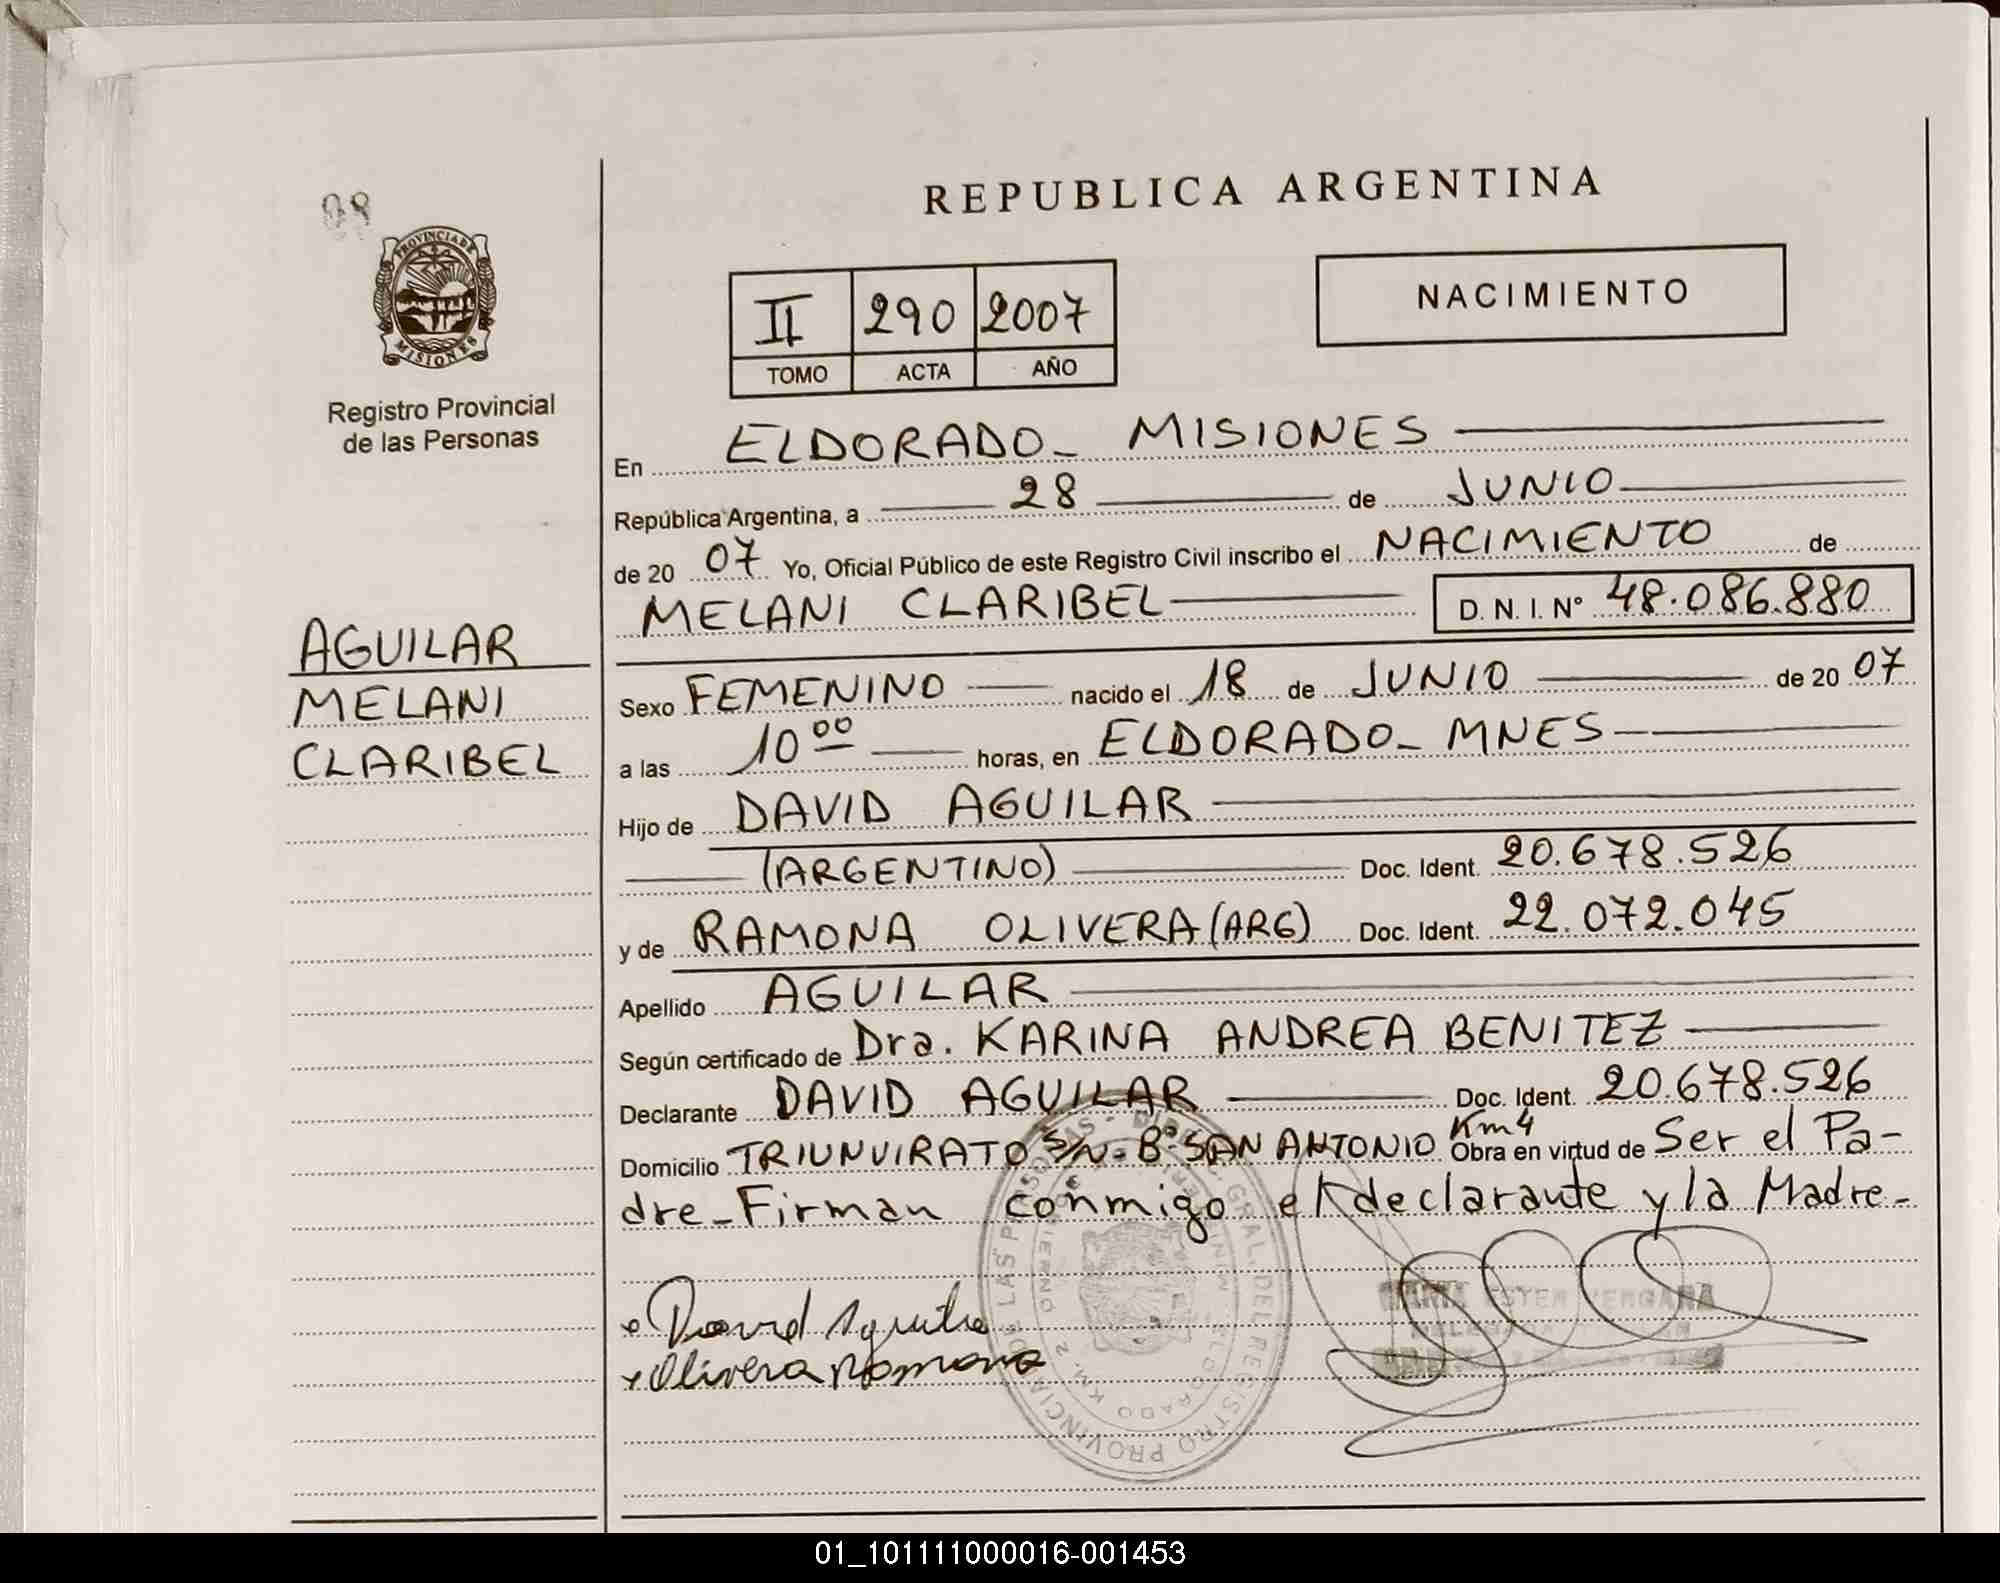 98
PROVINCIA DE
MISIONES
Registro Provincial
de las Personas
AGUILAR
MELANI
CLARIBEL
REPUBLICA ARGENTINA
II 290 2007
TOMO ACTA AÑO
NACIMIENTO
En ELDORADO_ MISIONES
República Argentina, a 28 de JUNIO
de 20 07 Yo, Oficial Público de este Registro Civil inscribo el NACIMIENTO de
MELANI CLARIBEL D. N. I. Nº 48.086.880
Sexo FEMENINO nacido el 18 de JUNIO de 20 07
a las 10 00 horas, en ELDORADO_ MNES
Hijo de DAVID AGUILAR
(ARGENTINO) Doc. Ident. 20.678.526
y de RAMONA OLIVERA (ARG) Doc. Ident. 22.072.045
Apellido AGUILAR
Según certificado de Dra. KARINA ANDREA BENITEZ
Declarante DAVID AGUILAR Doc. Ident. 20.678.526
Domicilio TRIUNVIRATO S/N- Bº SAN ANTONIO Km 4 Obra en virtud de Ser el Pa-
dre_Firman conmigo el declarante y la Madre-
David Aguilar
Olivera Ramona
ESTER VERGARA
01_101111000016-001453